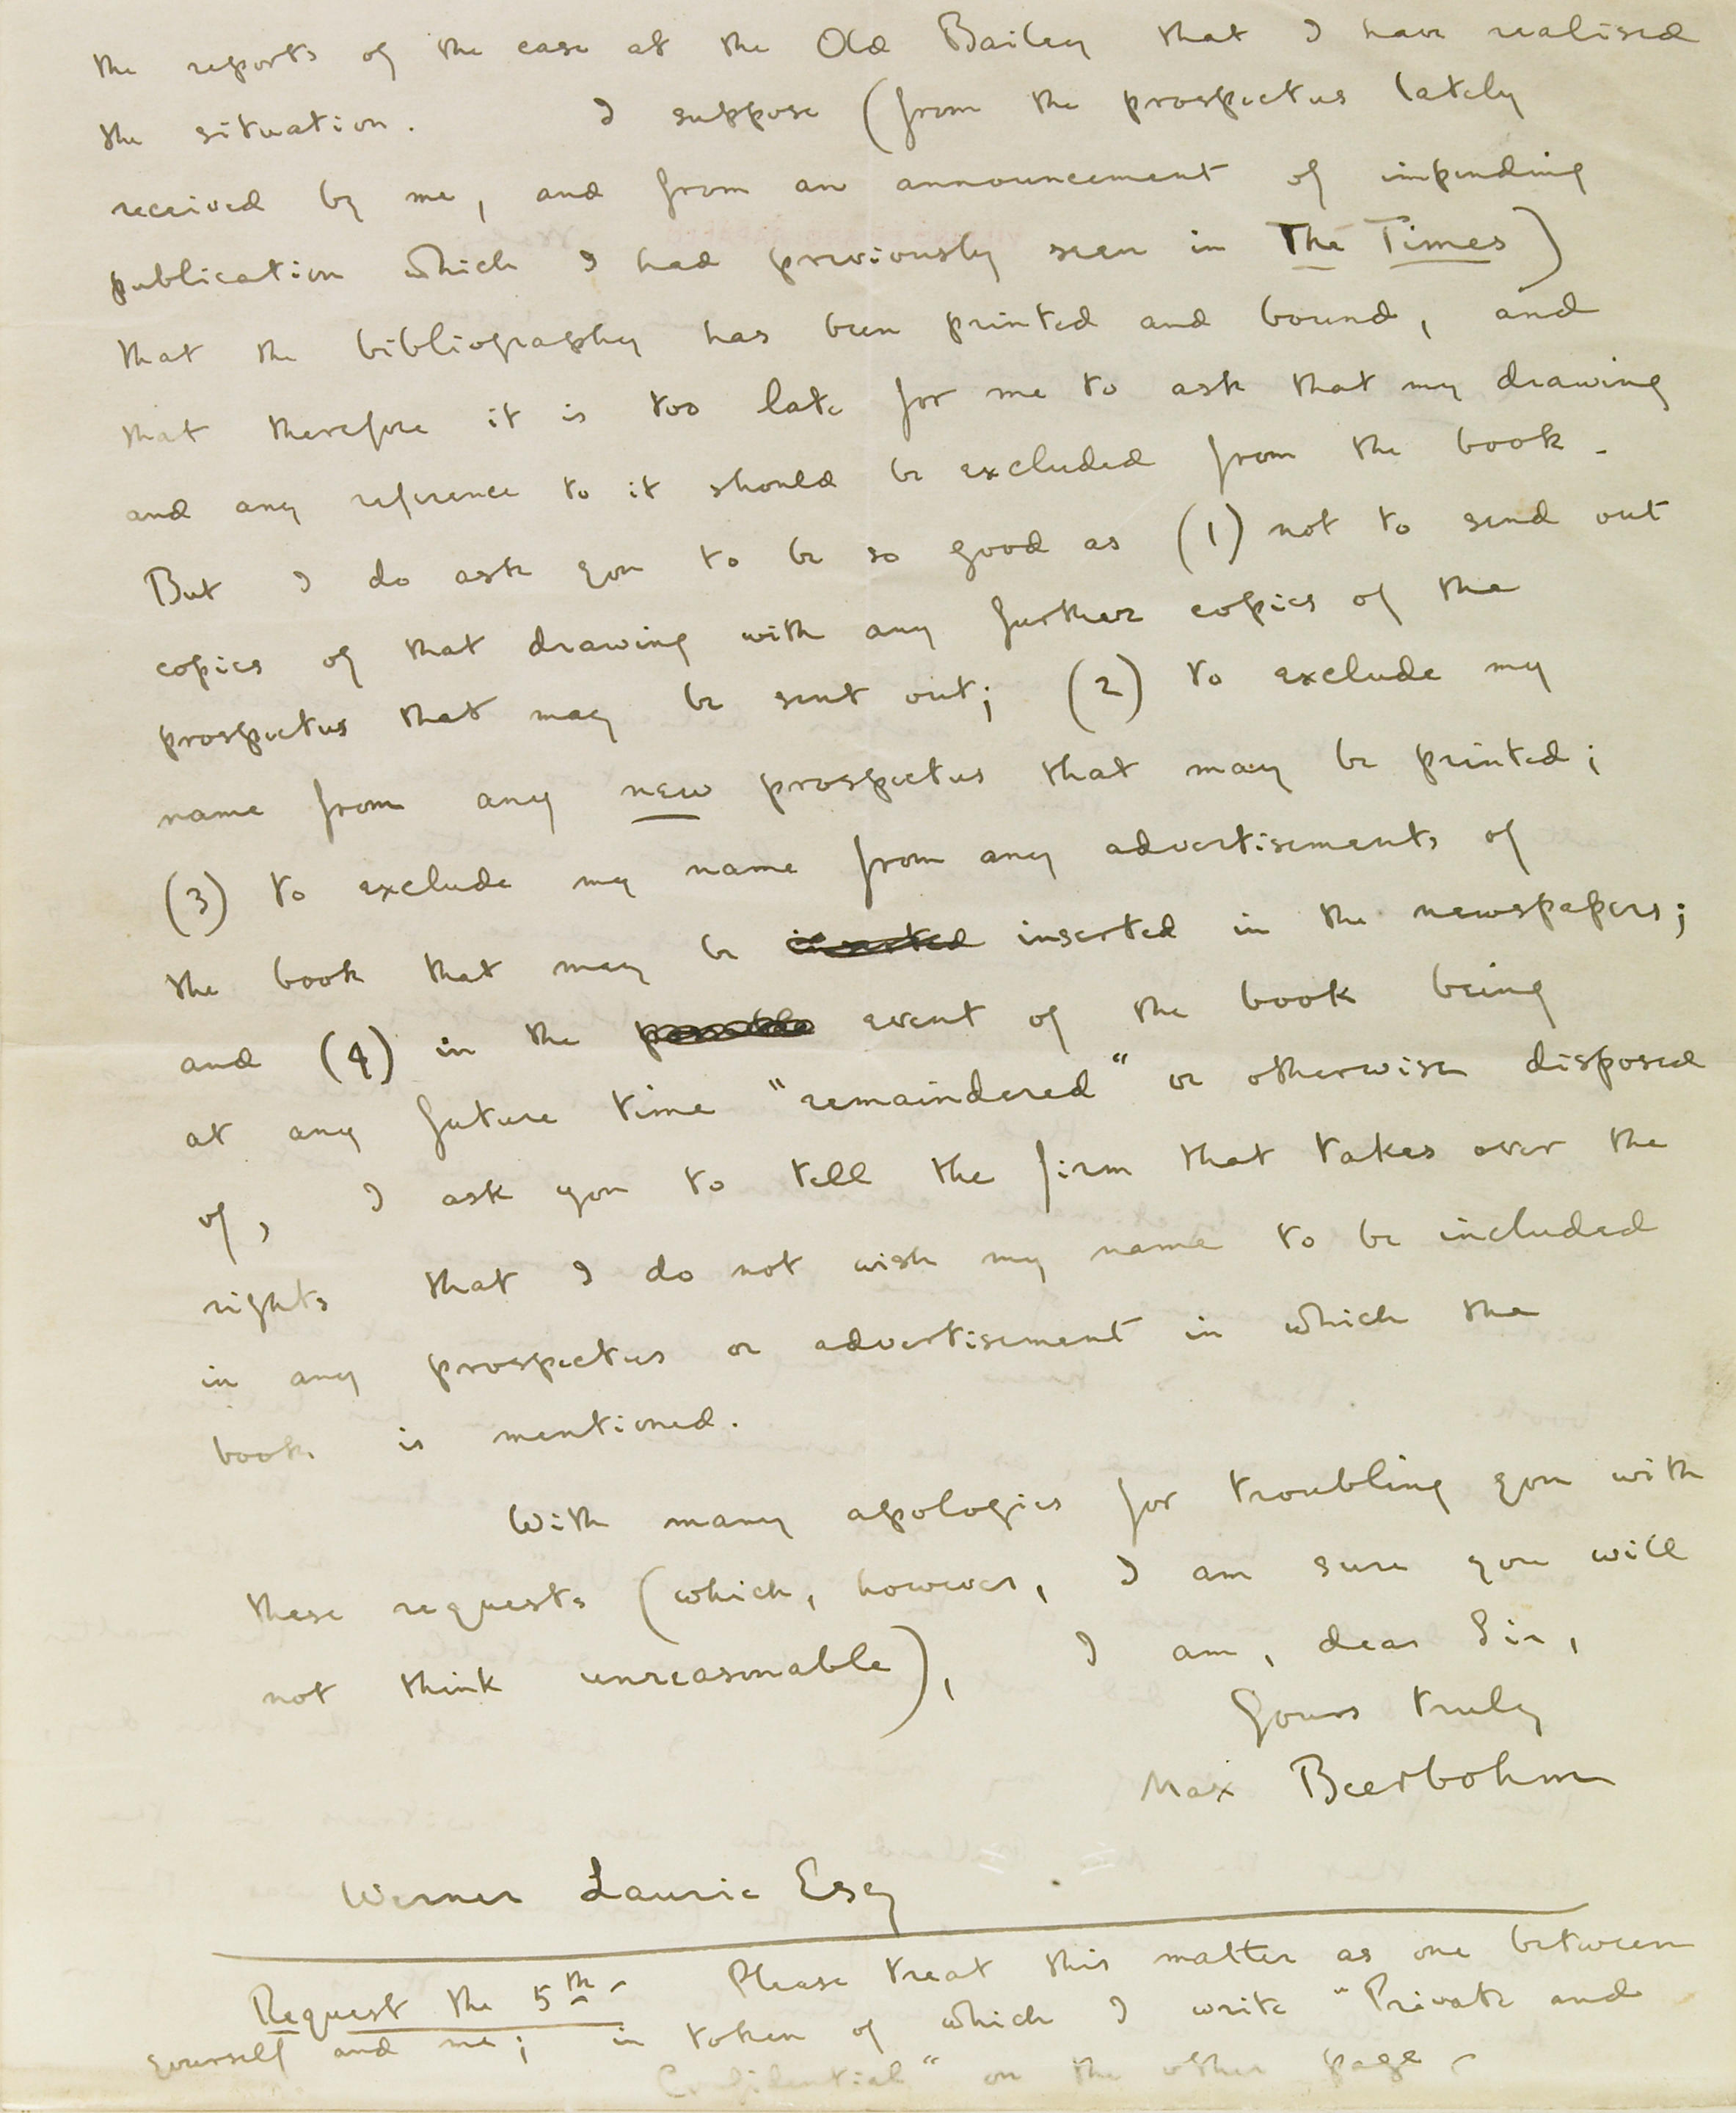 the reports of the case at the Old Bailey that I have realised
the situation. I suppose (from the prospectus lately
received by me, and from an announcement of impending
publication which I had previously seen in The Times)
that the bibliography has been printed and bound, and
that therefore it is too late for me to ask that my drawing
and any reference to it should be excluded from the book.
But I do ask you to be so good as (1) not to send out
copies of that drawing with any further copies of the
prospectus that may be sent out; (2) to exclude my
name from any new prospectus that may be printed;
(3) to exclude my name from any advertisements of
the book that may be inserted in the newspapers;
and (4) in the event of the book being
at any future time "remaindered" or otherwise disposed
of, I ask you to tell the firm that takes over the
rights that I do not wish my name to be included
in any prospectus or advertisement in which the
book is mentioned.
With many apologies for troubling you with
these requests (which, however, I am sure you will
not think unreasonable), I am, dear Sir,
Yours truly
Max Beerbohm
Werner Laurie Esq
Request the 5th - Please treat this matter as one between
yourself and me; in token of which I write "Private and
Confidential" on the other page -